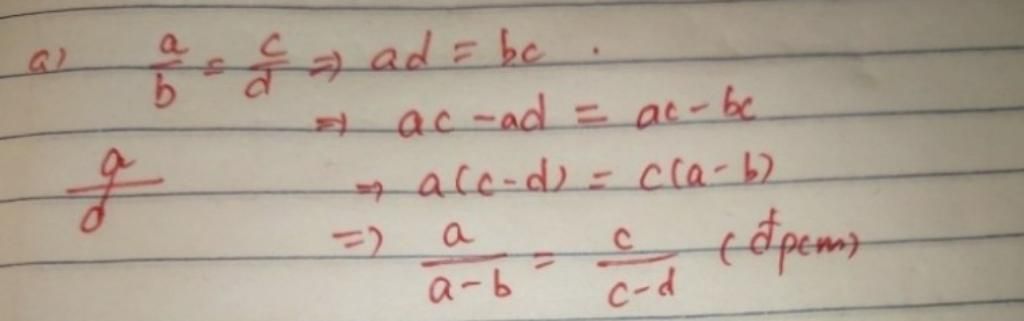 a) a/b = c/d => ad = bc .
=> ac - ad = ac - bc
a/d
=> a(c-d) = c(a-b)
=> a/(a-b) = c/(c-d) (đpcm)